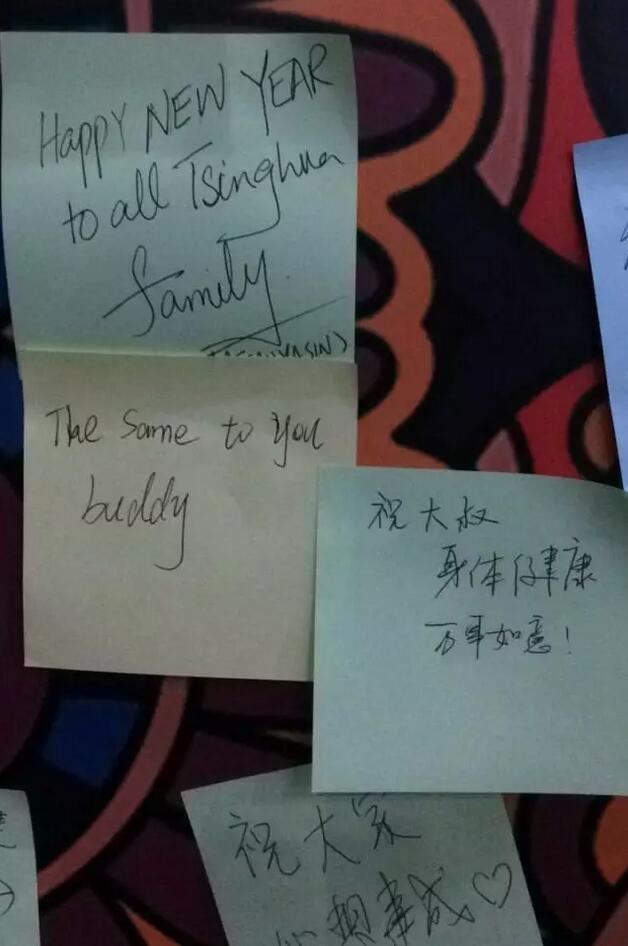 Happy NEW YEAR
to all Tsinghua
family
The Same to you
buddy
祝大叔
身体健康
万事如意！
祝大家
心想事成♡